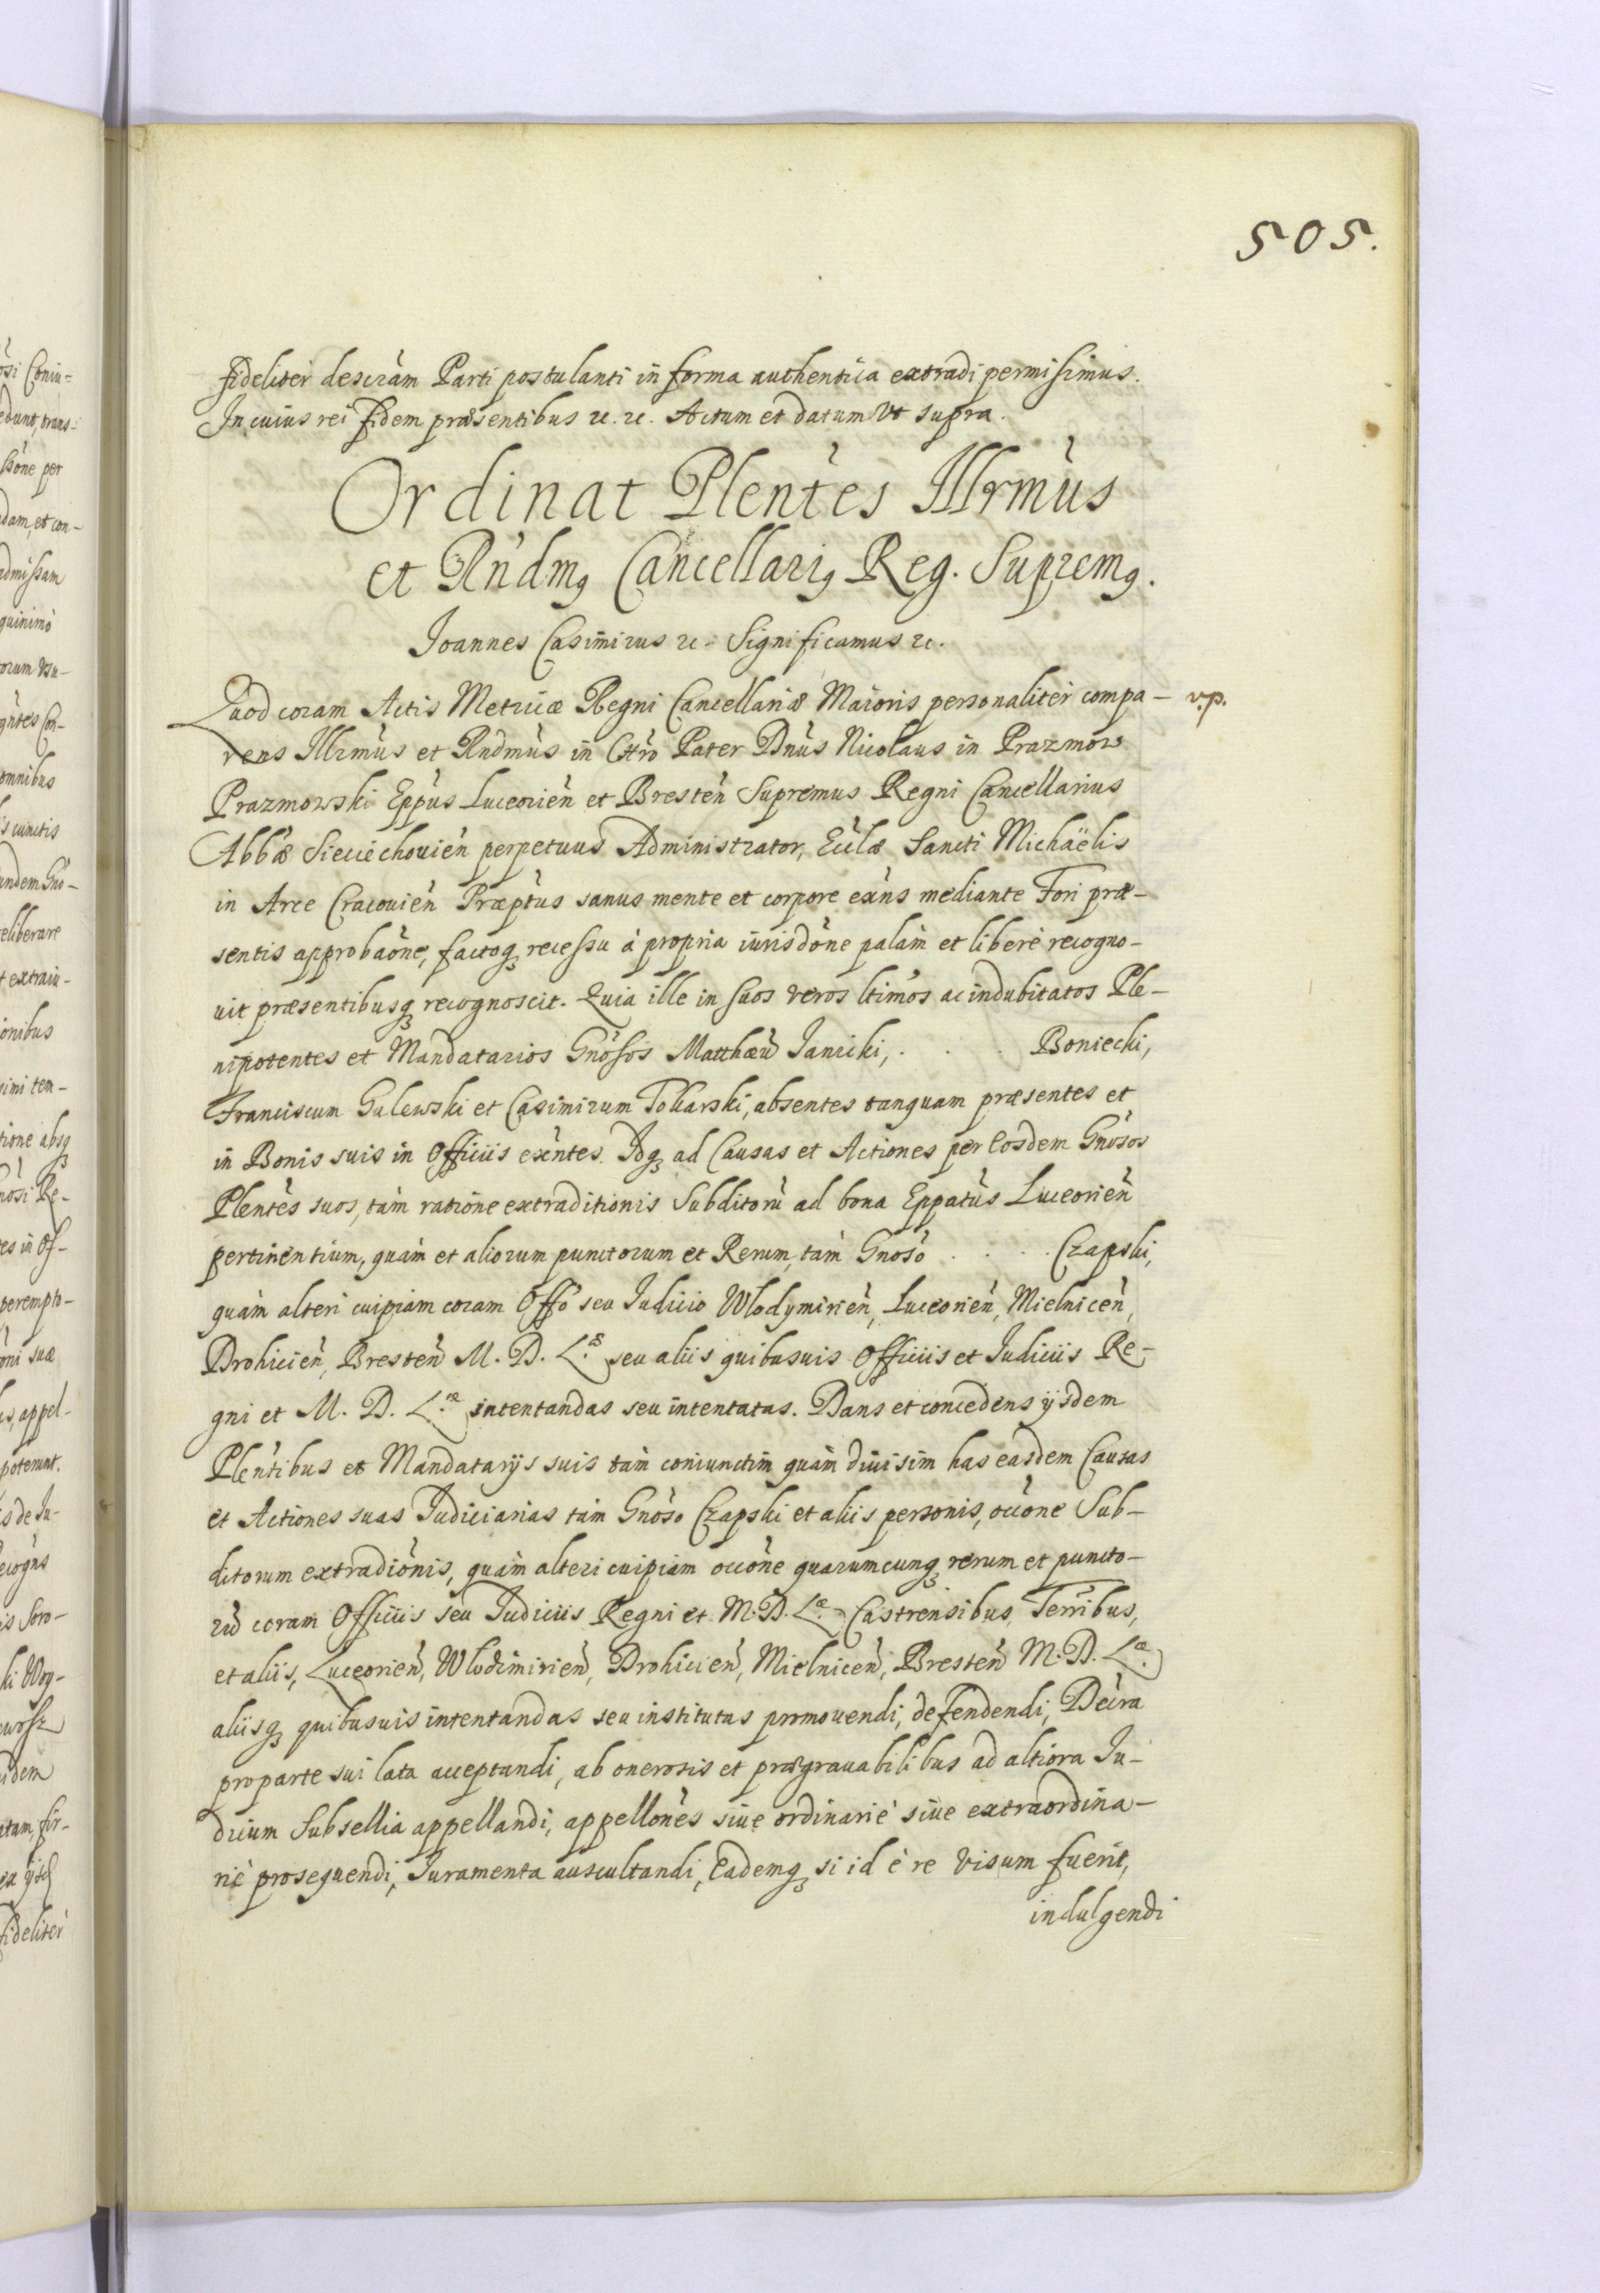 505.
fideliter descrãm Parti postulanti in forma authentica extradi permisimus.
In cuius rei fidem præsentibus rc. rc. Actum et datum vt supra.
Ordinat Plentes Illrmùs
et Rndmꝰ Cancellariꝰ Reg. Supremꝰ.
Joannes Casimirus rc. Significamus rc.
Quod coram Actis Metricæ Regni Cancellariæ Maioris personaliter compa- v.p.
rens Illrmùs et Rndmùs in Chro Pater Dnùs Nicolaus in Prazmow
Prazmowski Eppùs Luceorien̄ et Bresten̄ Supremus Regni Cancellarius
Abbæ Sieciechouien̄ perpetuus Administrator, Ecclæ Sancti Michaëlis
in Arce Cracouien̄ Præptus sanus mente et corpore exn̄s mediante Fori præ-
sentis approbaōne, factoq; recessu à propria iurisdōne palàm et liberè recogno-
uit præsentibusq; recognoscit. Quia ille in suos veros ltimos ac indubitatos Ple-
nipotentes et Mandatarios Gnōsos Matthæū Janicki, . . . Boniecki,
Franciscum Galewski et Casimirum Tokarski, absentes tanquam præsentes et
in Bonis suis in Officiis exn̄tes. Idq; ad Causas et Actiones per Eosdem Gnōsos
Plentes suos, tàm ratione extraditionis Subditorū ad bona Eppatùs Luceorien̄
pertinentium, quàm et aliorum punctorum et Rerum, tàm Gnōso . . . . Czapski,
quàm alteri cuipiam coram Offō seu Judicio Wlodymirien̄, Luceorien̄, Mielnicen̄,
Drohicien̄, Bresten̄ M. D. L.æ seu aliis quibusuis Officiis et Judiciis Re-
gni et M. D. L.æ intentandas seu intentatas. Dans et concedens ijsdem
Plentibus et Mandatarijs suis tàm coniunctim quàm diuisim has easdem Causas
et Actiones suas Judiciarias tàm Gnōso Czapski et aliis personis, occōne Sub-
ditorum extradiōnis, quàm alteri cuipiam occōne quarumcunq; rerum et puncto-
rū coram Officiis seu Judiciis Regni et M. D. L.æ Castrensibus, Terribus,
et aliis, Luceorien̄, Wlodimirien̄, Drohicien̄, Mielnicen̄, Bresten̄ M. D. L.æ
aliisq; quibusuis intentandas seu institutas promouendi, defendendi, Decra
pro parte sui lata acceptandi, ab onerosis et prægrauabilibus ad altiora Ju-
dicium Subsellia appellandi, appellōnes siue ordinariè siue extraordina-
riè prosequendi, Juramenta auscultandi, Eademq; si id è re visum fuerit,
indulgendi